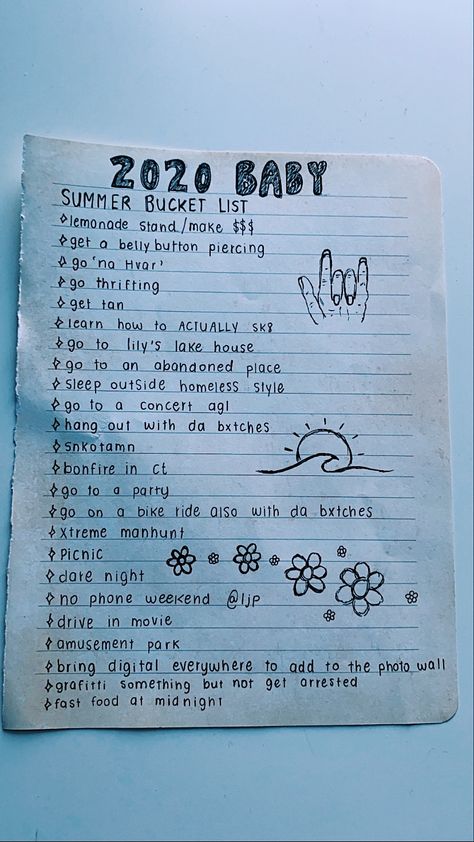 2020 BABY
SUMMER BUCKET LIST
lemonade stand/make $$$
get a bellybutton piercing
go 'na Hvar'
go thrifting
get tan
learn how to ACTUALLY sk8
go to lily's lake house
go to an abandoned place
sleep outside homeless style
go to a concert agl
hang out with da bxtches
snkotamn
bonfire in ct
go to a party
go on a bike ride also with da bxtches
xtreme manhunt
Picnic
dare night
no phone weekend @ljp
drive in movie
amusement park
bring digital everywhere to add to the photo wall
grafitti something but not get arrested
fast food at midnight